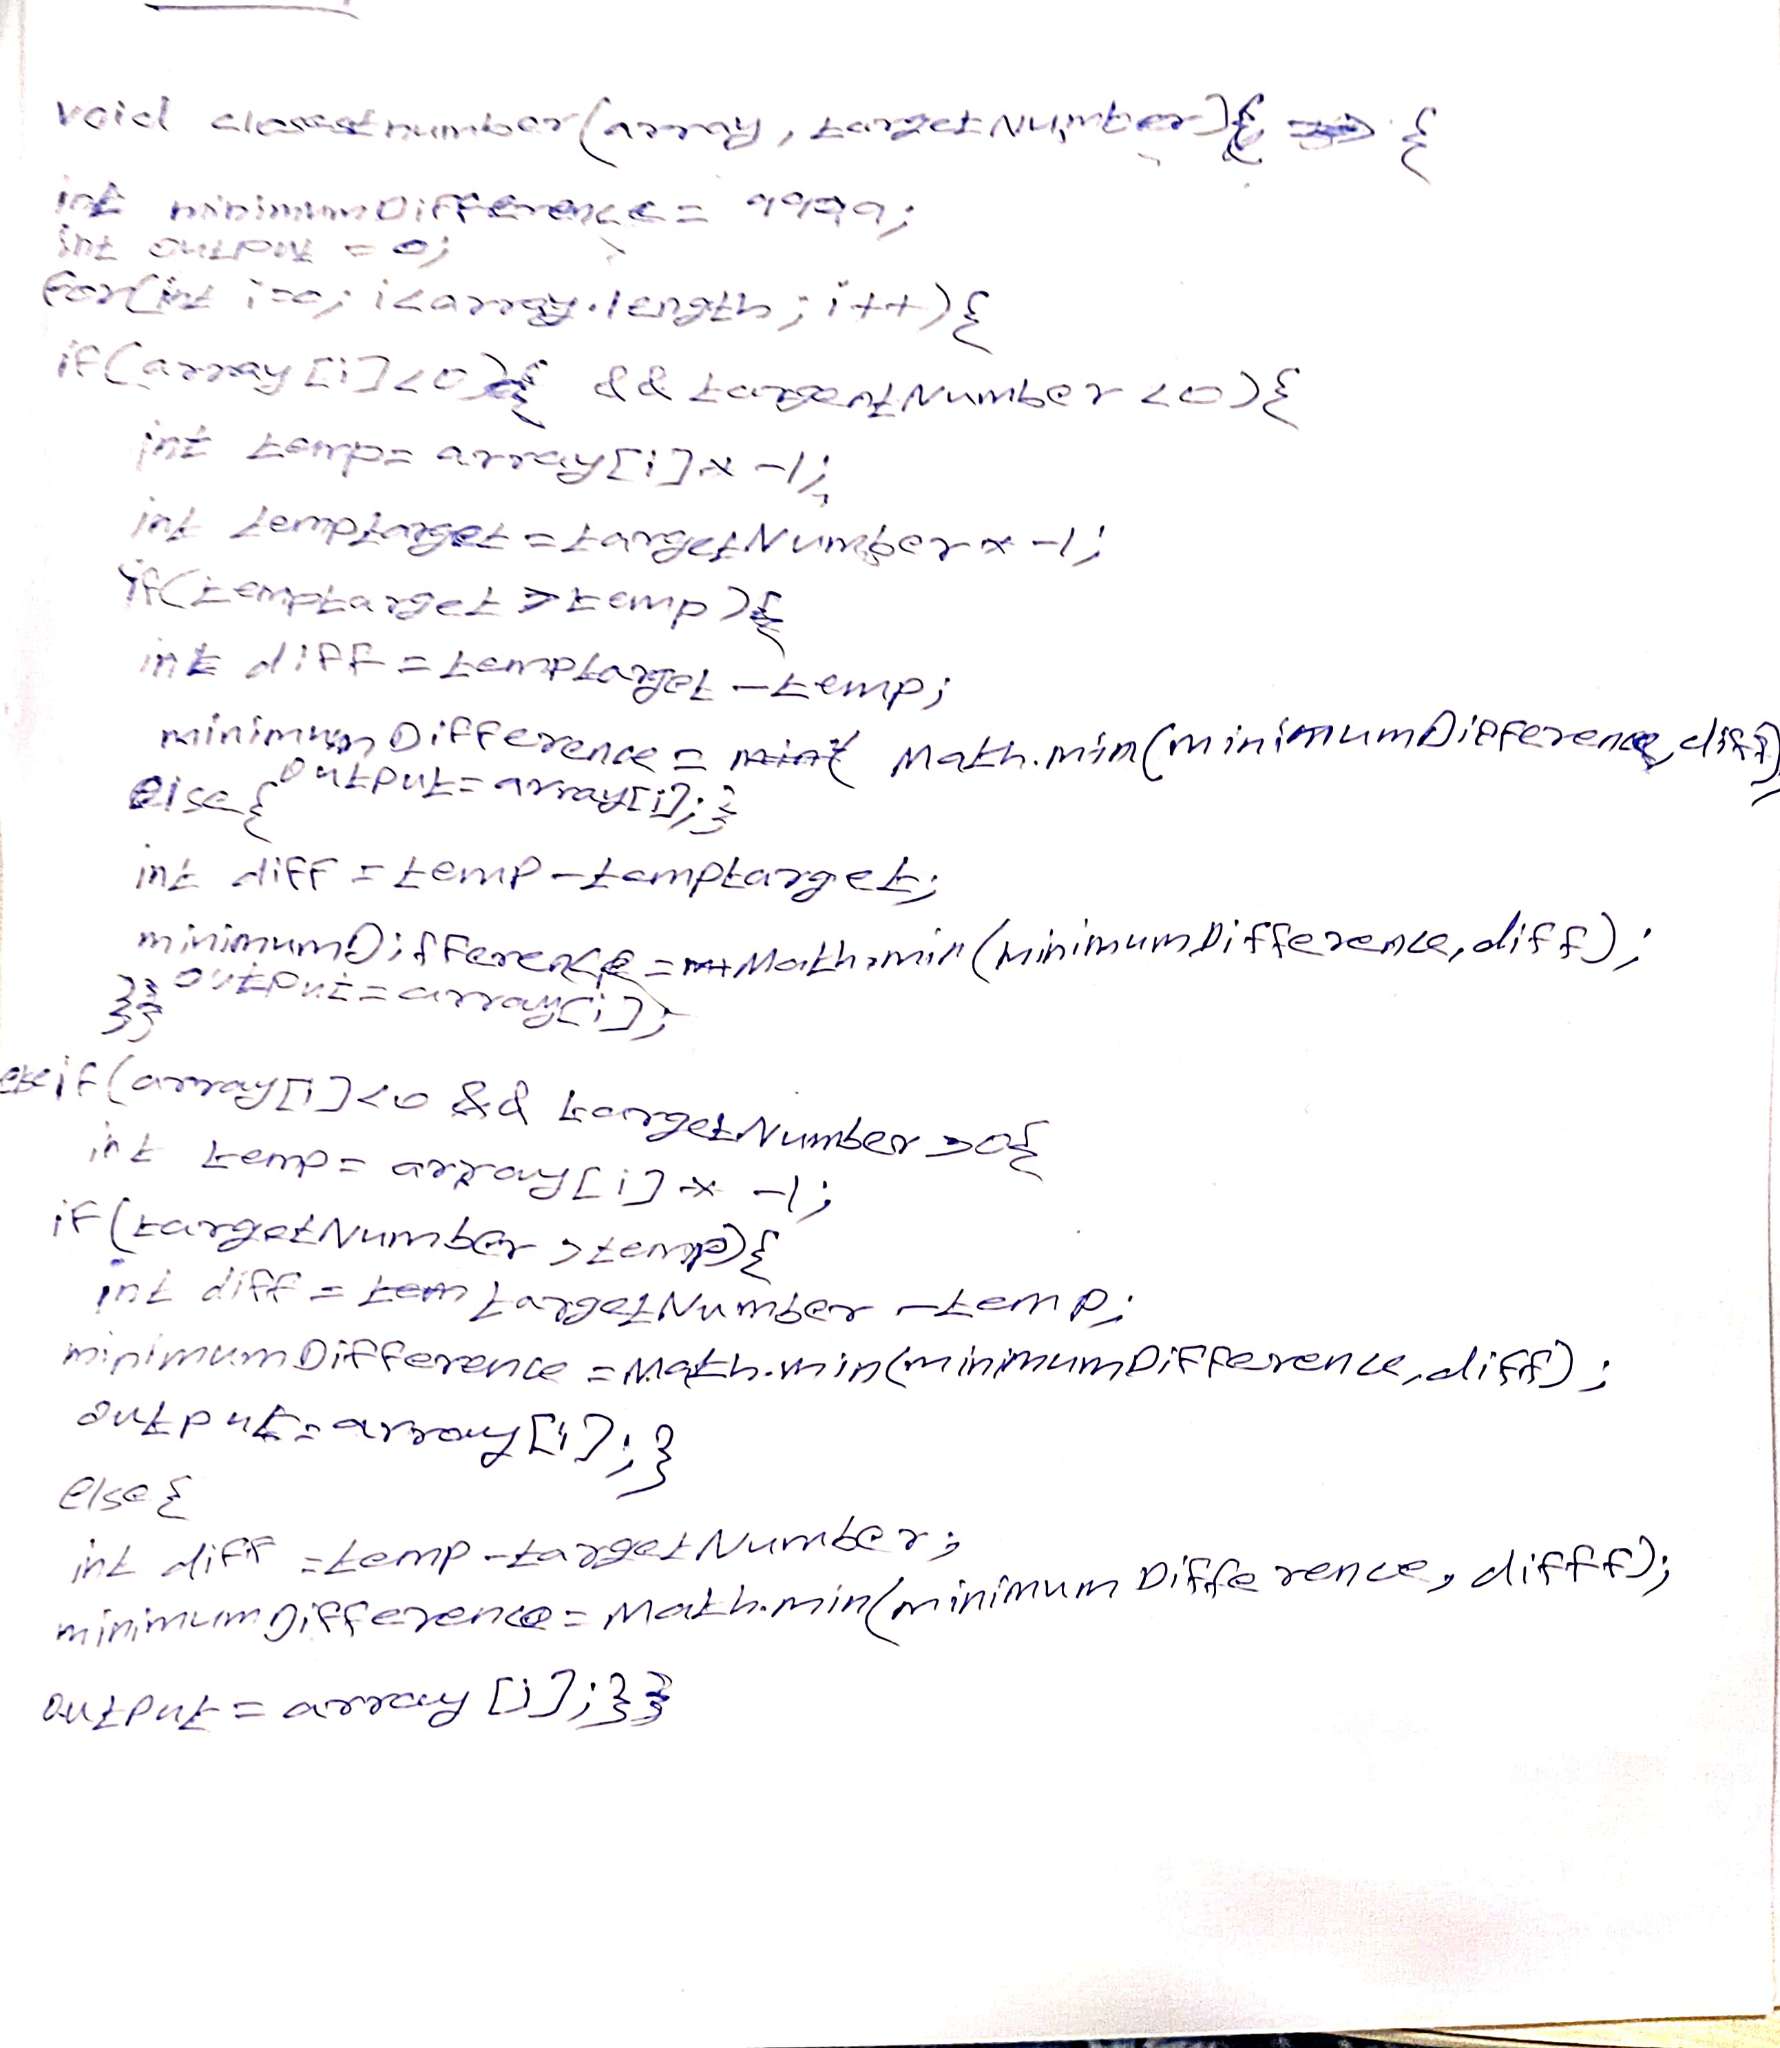 void closestnumber(array, targetNumber){ {
int minimumDifference = 9999;
int output = 0;
for(int i=0; i<array.length; i++){
if(array[i]<0){ && targentNumber <0){
int temp= array[i]* -1;
int temptarget = targetNumber* -1;
if(temptarget > temp){
int diff = temptarget - temp;
minimumDifference = mint Math.min(minimumDifference, diff);
output= array[i]; }
else{
int diff = temp - temptarget;
minimumDifference = Math.min(minimumDifference, diff);
output = array[i];
}}
else if(array[i]<0 && targetNumber >0{
int temp= array[i] * -1;
if(targetNumber > temp){
int diff = tem targetNumber - temp;
minimumDifference = Math.min(minimumDifference, diff);
output = array[i]; }
else {
int diff = temp - targetNumber;
minimumDifference = Math.min(minimumDifference, difff);
output = array[i]; }}